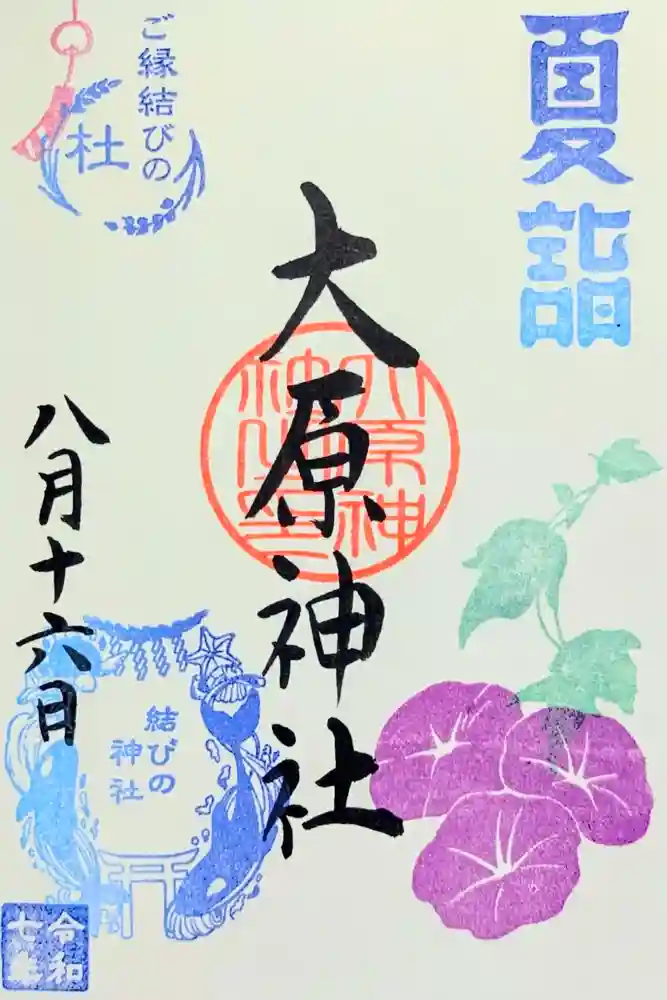 夏詣
ご縁結びの
杜
大原神社
八月十六日
結びの
神社
令和
七年